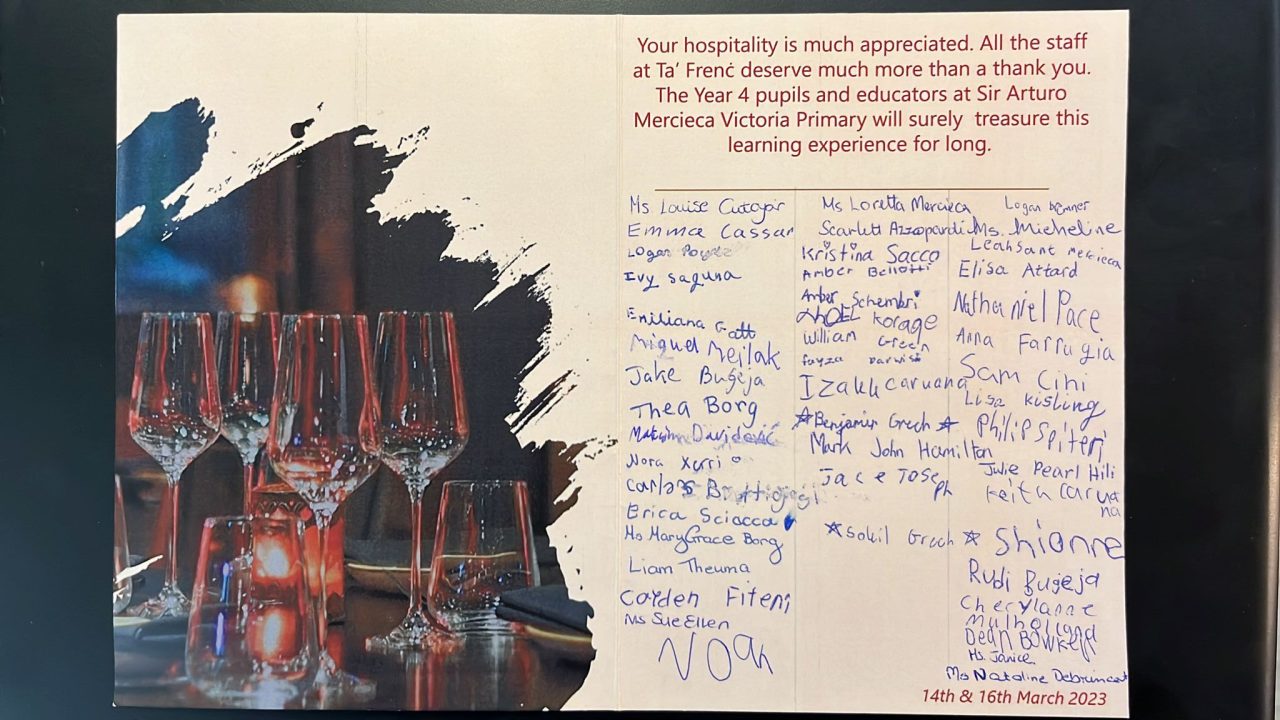 Your hospitality is much appreciated. All the staff
at Ta’ Frenċ deserve much more than a thank you.
The Year 4 pupils and educators at Sir Arturo
Mercieca Victoria Primary will surely treasure this
learning experience for long.
Ms Louise Cutajar
Emma Cassar
Logan
Ivy Saguna
Emiliana Gatt
Miguel Mejlak
Jake Bugeja
Thea Borg
Davidović
Nora Xerri
Carlos
Erica Sciacca
Ms MaryGrace Borg
Liam Theuma
Cayden Fiteni
Ms Sue Ellen
Noah
Ms Loretta Mercieca
Scarlett Azzopardi
Kristina Sacco
Amber Bellotti
Amber Schembri
Korage
William Green
Fayza Darwish
Izakk Caruana
Benjamin Grech
Mark John Hamilton
Jace Joseph
Soleil Grech
Logan
Ms. Micheline
Leah Sant Mercieca
Elisa Attard
Nathaniel Pace
Anna Farrugia
Sam Cini
Lisa Kisling
Philip Spiteri
Julie Pearl Hili
Keita Carua
na
Shionne
Rudi Bugeja
Cherylanne
Mulholland
Dean Bowker
Ms. Janice
Ms Nataline Debrincat
14th & 16th March 2023